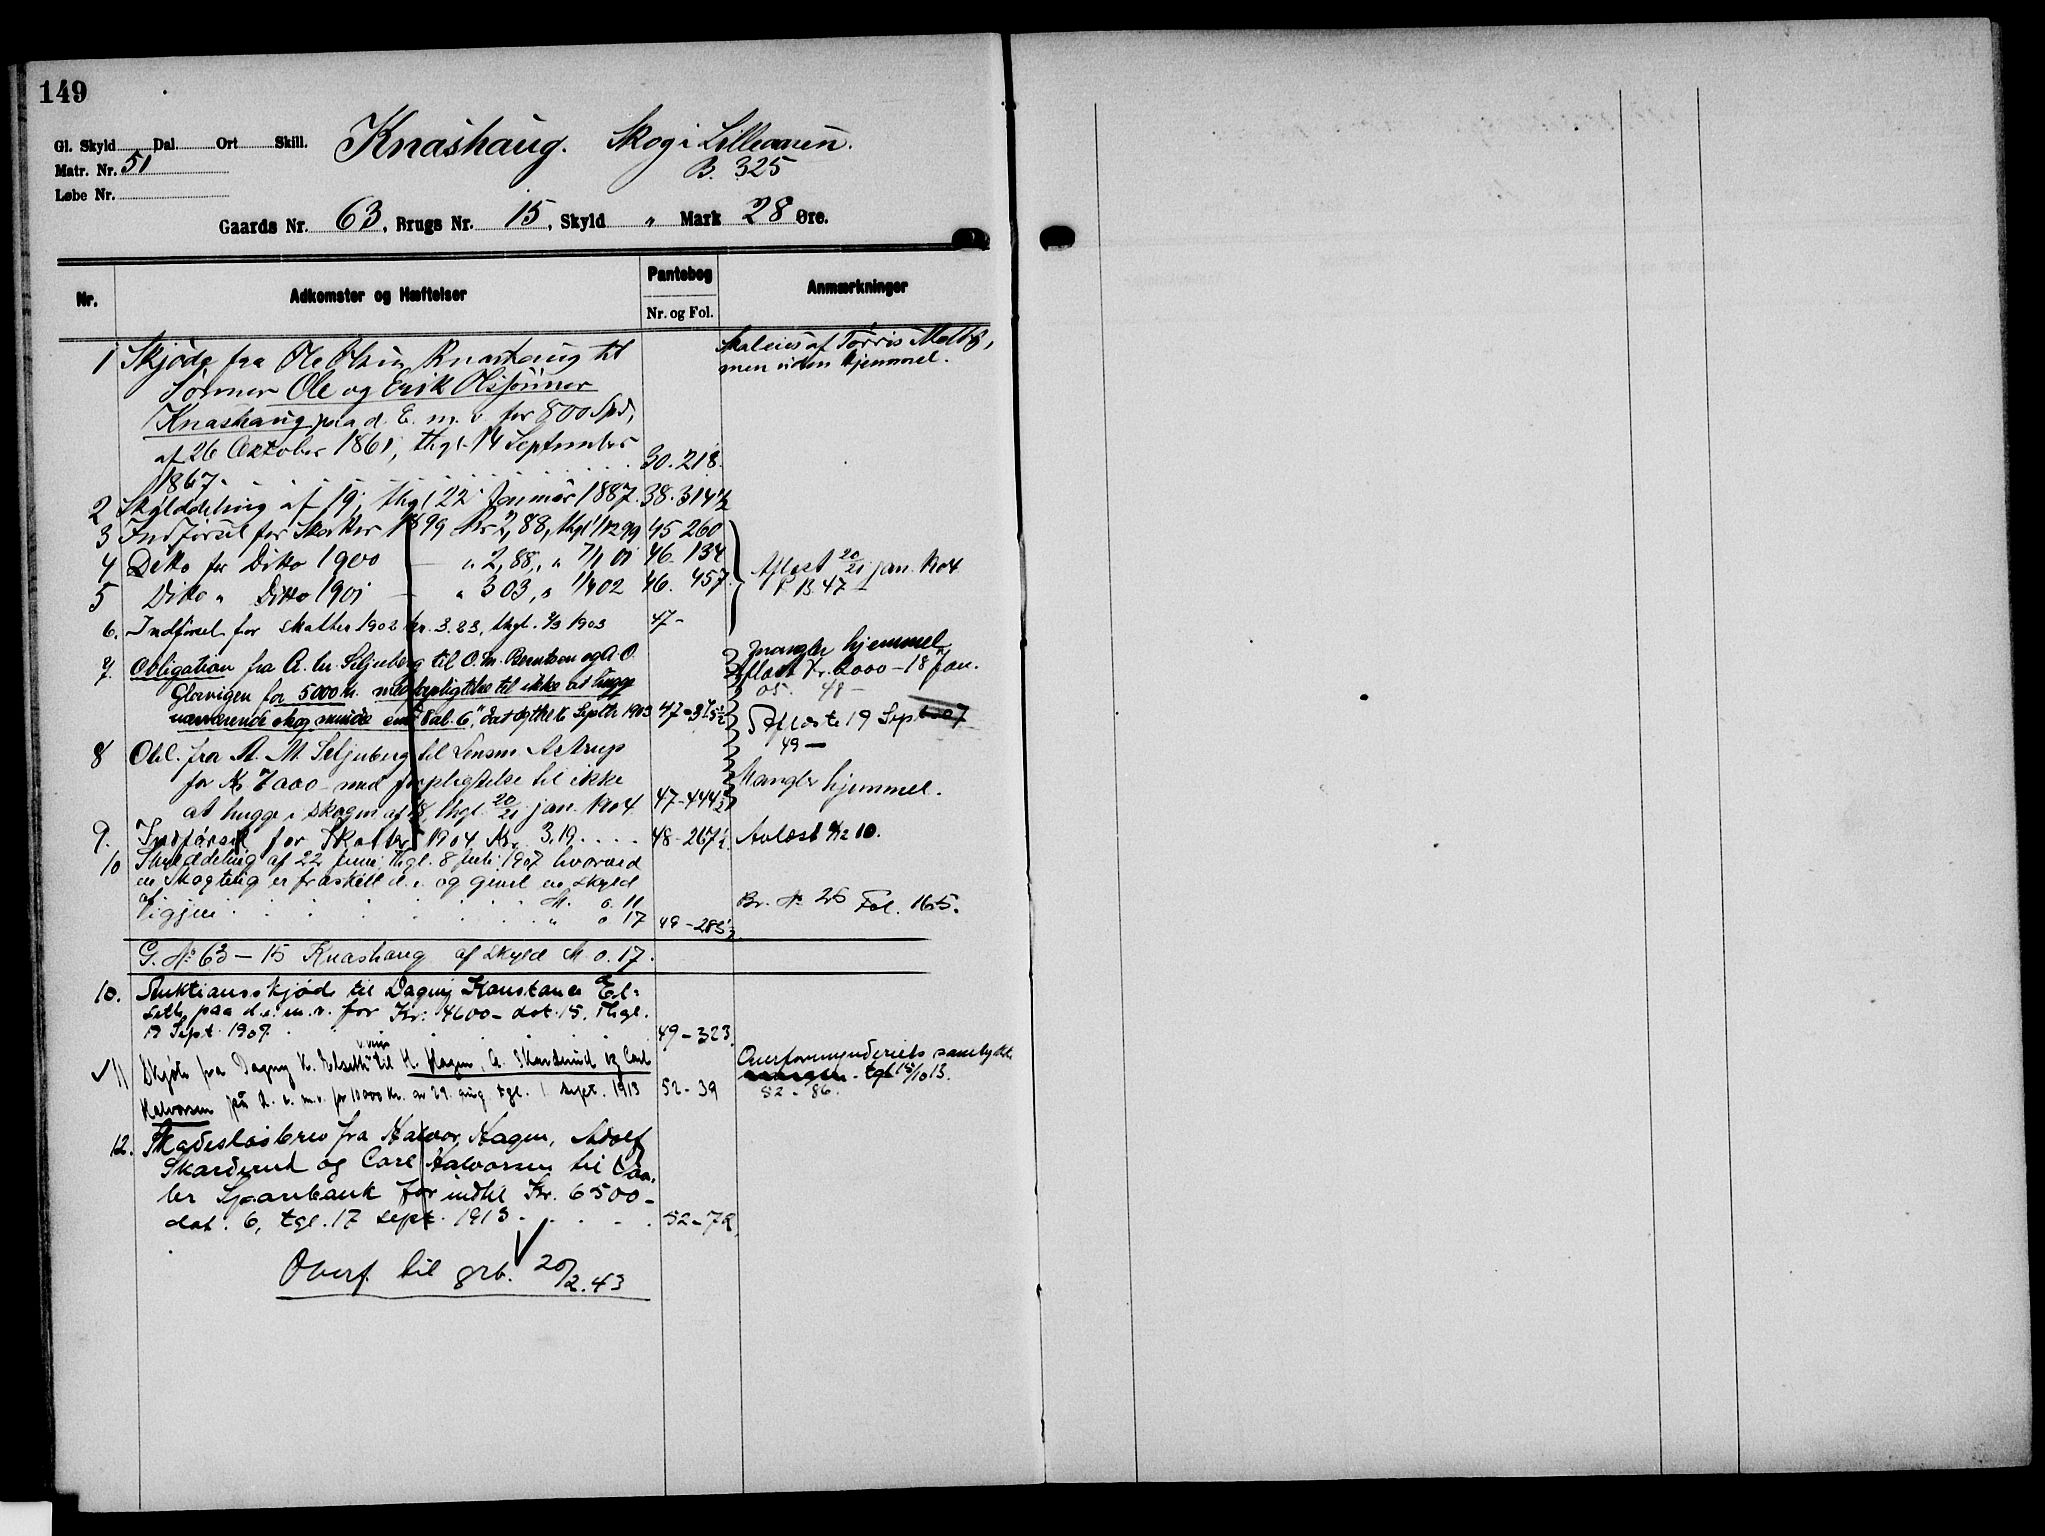 149
Gl. Skyld Dal Ort Skill. Knashaug. Skog i Lilleaaen.
Matr. Nr. 51 B. 325
Løbe Nr.
Gaards Nr. 63, Brugs Nr. 15, Skyld " Mark 28 Øre.
Nr. Adkomster og Hæftelser Pantebog Nr. og Fol. Anmærkninger
1 Skjøde fra Ole Olsen Knashaug til Skal eies af Torris Moltb,
Sønner Ole og Erik Olssønner men uden hjemmel.
Knashaug paa d. E. m. v. for 800 Spd,
af 26 Oktober 1861, thgl. 14 September
1867. 30. 218.
2 Skylddeling af 19, thgl 22 Januar 1887. 38. 314½
3 Indførsel for Skatter 1899 Kr 2,88, thgl 1/12 99 45 260
4 Ditto for Ditto 1900 — " 2,88, " 7/1 01 46. 134 Aflæst 20/21 jan. 1904
5 Ditto " Ditto 1901 — " 3 03, " 1/4 02 46. 457. P B. 47 —
6. Indførsel for skatter 1902 kr. 3.23, thgl. 1903 47 -
7. Obligation fra A. M. Siljuberg til O. M. Berntsen og A. O. Mangler hjemmel
Glaavigen for 5000 kr. med forpligtelse til ikke at hugge Aflæst Kr. 2000 — 18 Jan.
nærværende skog mindre end 8 al. 6", dat. og thgl. Septbr 1903 47 - 375½ 05. 48 —
Aflæst 19 Sept 1907
49 —
8 Obl. fra A. M. Siljuberg til Lensm Astrup
for Kr 7000 — med forpligtelse til ikke Mangler hjemmel.
at hugge i skogen af 18, thgl. 20/21 jan. 1904. 47-444½
9. Indførsel for Skatter 1904 Kr. 3,19 . . . . 48-267½ Avlæst 12 10.
10 Skylddeling af 22 Juni, thgl. 8 Juli 1907 hvorved
en Skogteig er fraskilt d. e. og givet en skyld
af M. 0. 11 Br. Nr 26 Fol. 165.
Igjen . . . . . . " 0 17 49 - 285½
G. Nr 63 — 15 Knashaug af skyld M. 0. 17.
10. Auktionsskjøde til Dagny Konstance El-
seth paa d. e. m. v. for Kr. 4600 — dat. 15. Thgl.
19 Sept. 1907. 49 - 323.
✓ 11 Skjøte fra Dagny K. Elseth til H. Hagen, A. Skarderud og Carl Overformynderiets samtykke
Halvorsen på d. e. m. v. for 10000 kr. av 29. aug. tgl. 1. sept. 1913 52 - 39 tgl 15/10 13.
52 - 86.
12. Skadesløsbrev fra Halvor Hagen, Adolf
Skarderud og Carl Halvorsen til Vaa-
ler Sparebank for indtil Kr. 6500 -
dat. 6, tgl. 17 sept. 1913 . . . . 52 - 72.
Overf. til grb. 20/2. 43